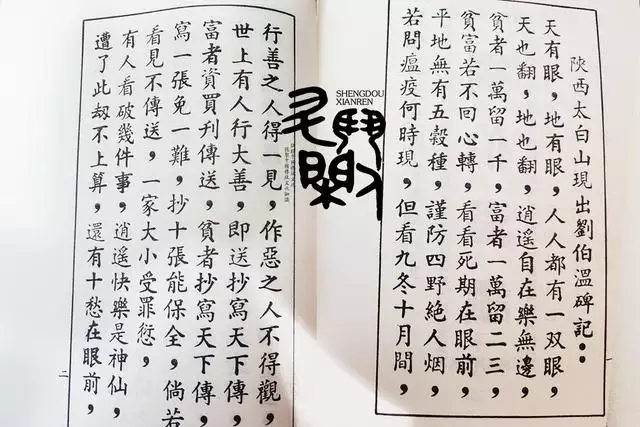 陝西太白山現出劉伯溫碑記：
天有眼，地有眼，人人都有一双眼，
天也翻，地也翻，逍遥自在樂無邊，
貧者一萬留一千，富者一萬留二三，
貧富若不回心轉，看看死期在眼前，
平地無有五穀種，謹防四野絕人烟，
若問瘟疫何時現，但看九冬十月間，
一
行善之人得一見，作惡之人不得觀，
世上有人行大善，即送抄寫天下傳，
富者資買刊傳送，貧者抄寫天下傳，
寫一張免一難，抄十張能保全，倘若
看見不傳送，一家大小受罪愆，
有人看破幾件事，逍遥快樂是神仙，
遭了此刼不上算，還有十愁在眼前，
二
SHENGDOU
XIANREN